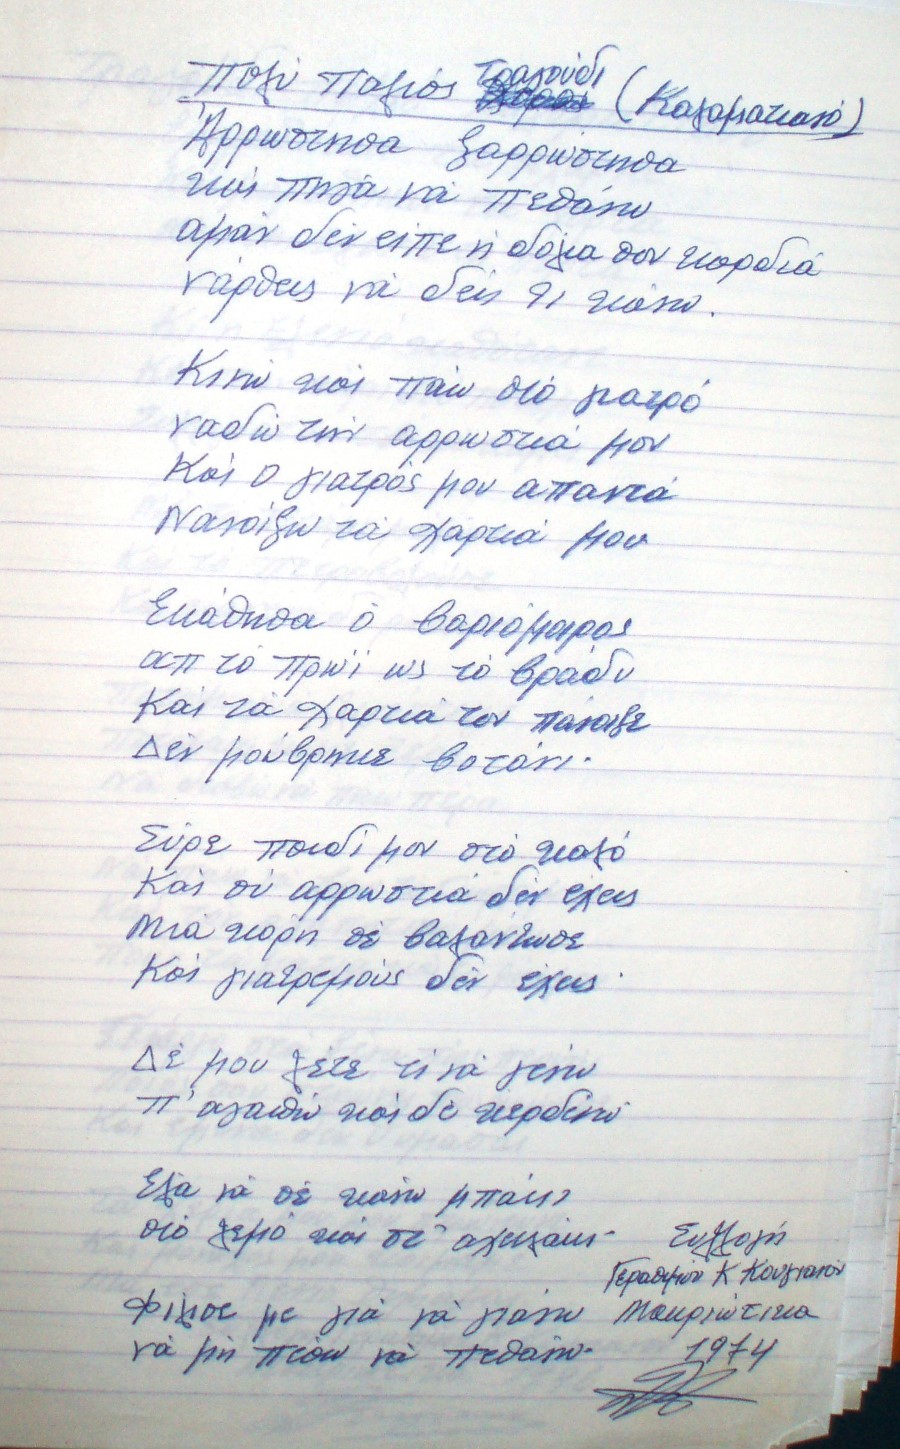 Πολύ Παλιός τραγούδι (Καλαματιανό)
Άρρώστησα ξαρρώστησα
καί πηγά νά πεθάνω
αμάν δέν είπε η δόλια σου καρδιά
νάρθεις νά δείς τι κάνω.
Κινώ καί πάω στό γιατρό
ναδώ τήν αρρωστιά μου
Καί ο γιατρός μου απαντά
Νανοίξω τά χαρτιά μου
Εκάθησα ό βαριόμοιρος
απ τό πρωί ως τό βράδυ
Καί τά χαρτιά του πάνοιξε
Δέν μούβρηκε βοτάνι.
Σύρε παιδί μου στό καλό
Καί σύ αρρωστιά δέν έχεις
Μιά κόρη σέ βαλάντωσε
Καί γιατρεμούς δέν έχεις.
Δέ μου λέτε τί νά γενώ
π' αγαπώ καί δέ κερδένω
Έλα νά σέ κάνω μπάνιο
στό λεμό καί στ' αχειλάκι
Φίλησε με γιά νά γιάνω
νά μή πέσω νά πεθάνω.
Συλλογή
Γερασίμου Κ Κουγιανού
Μακριώτικα
1974